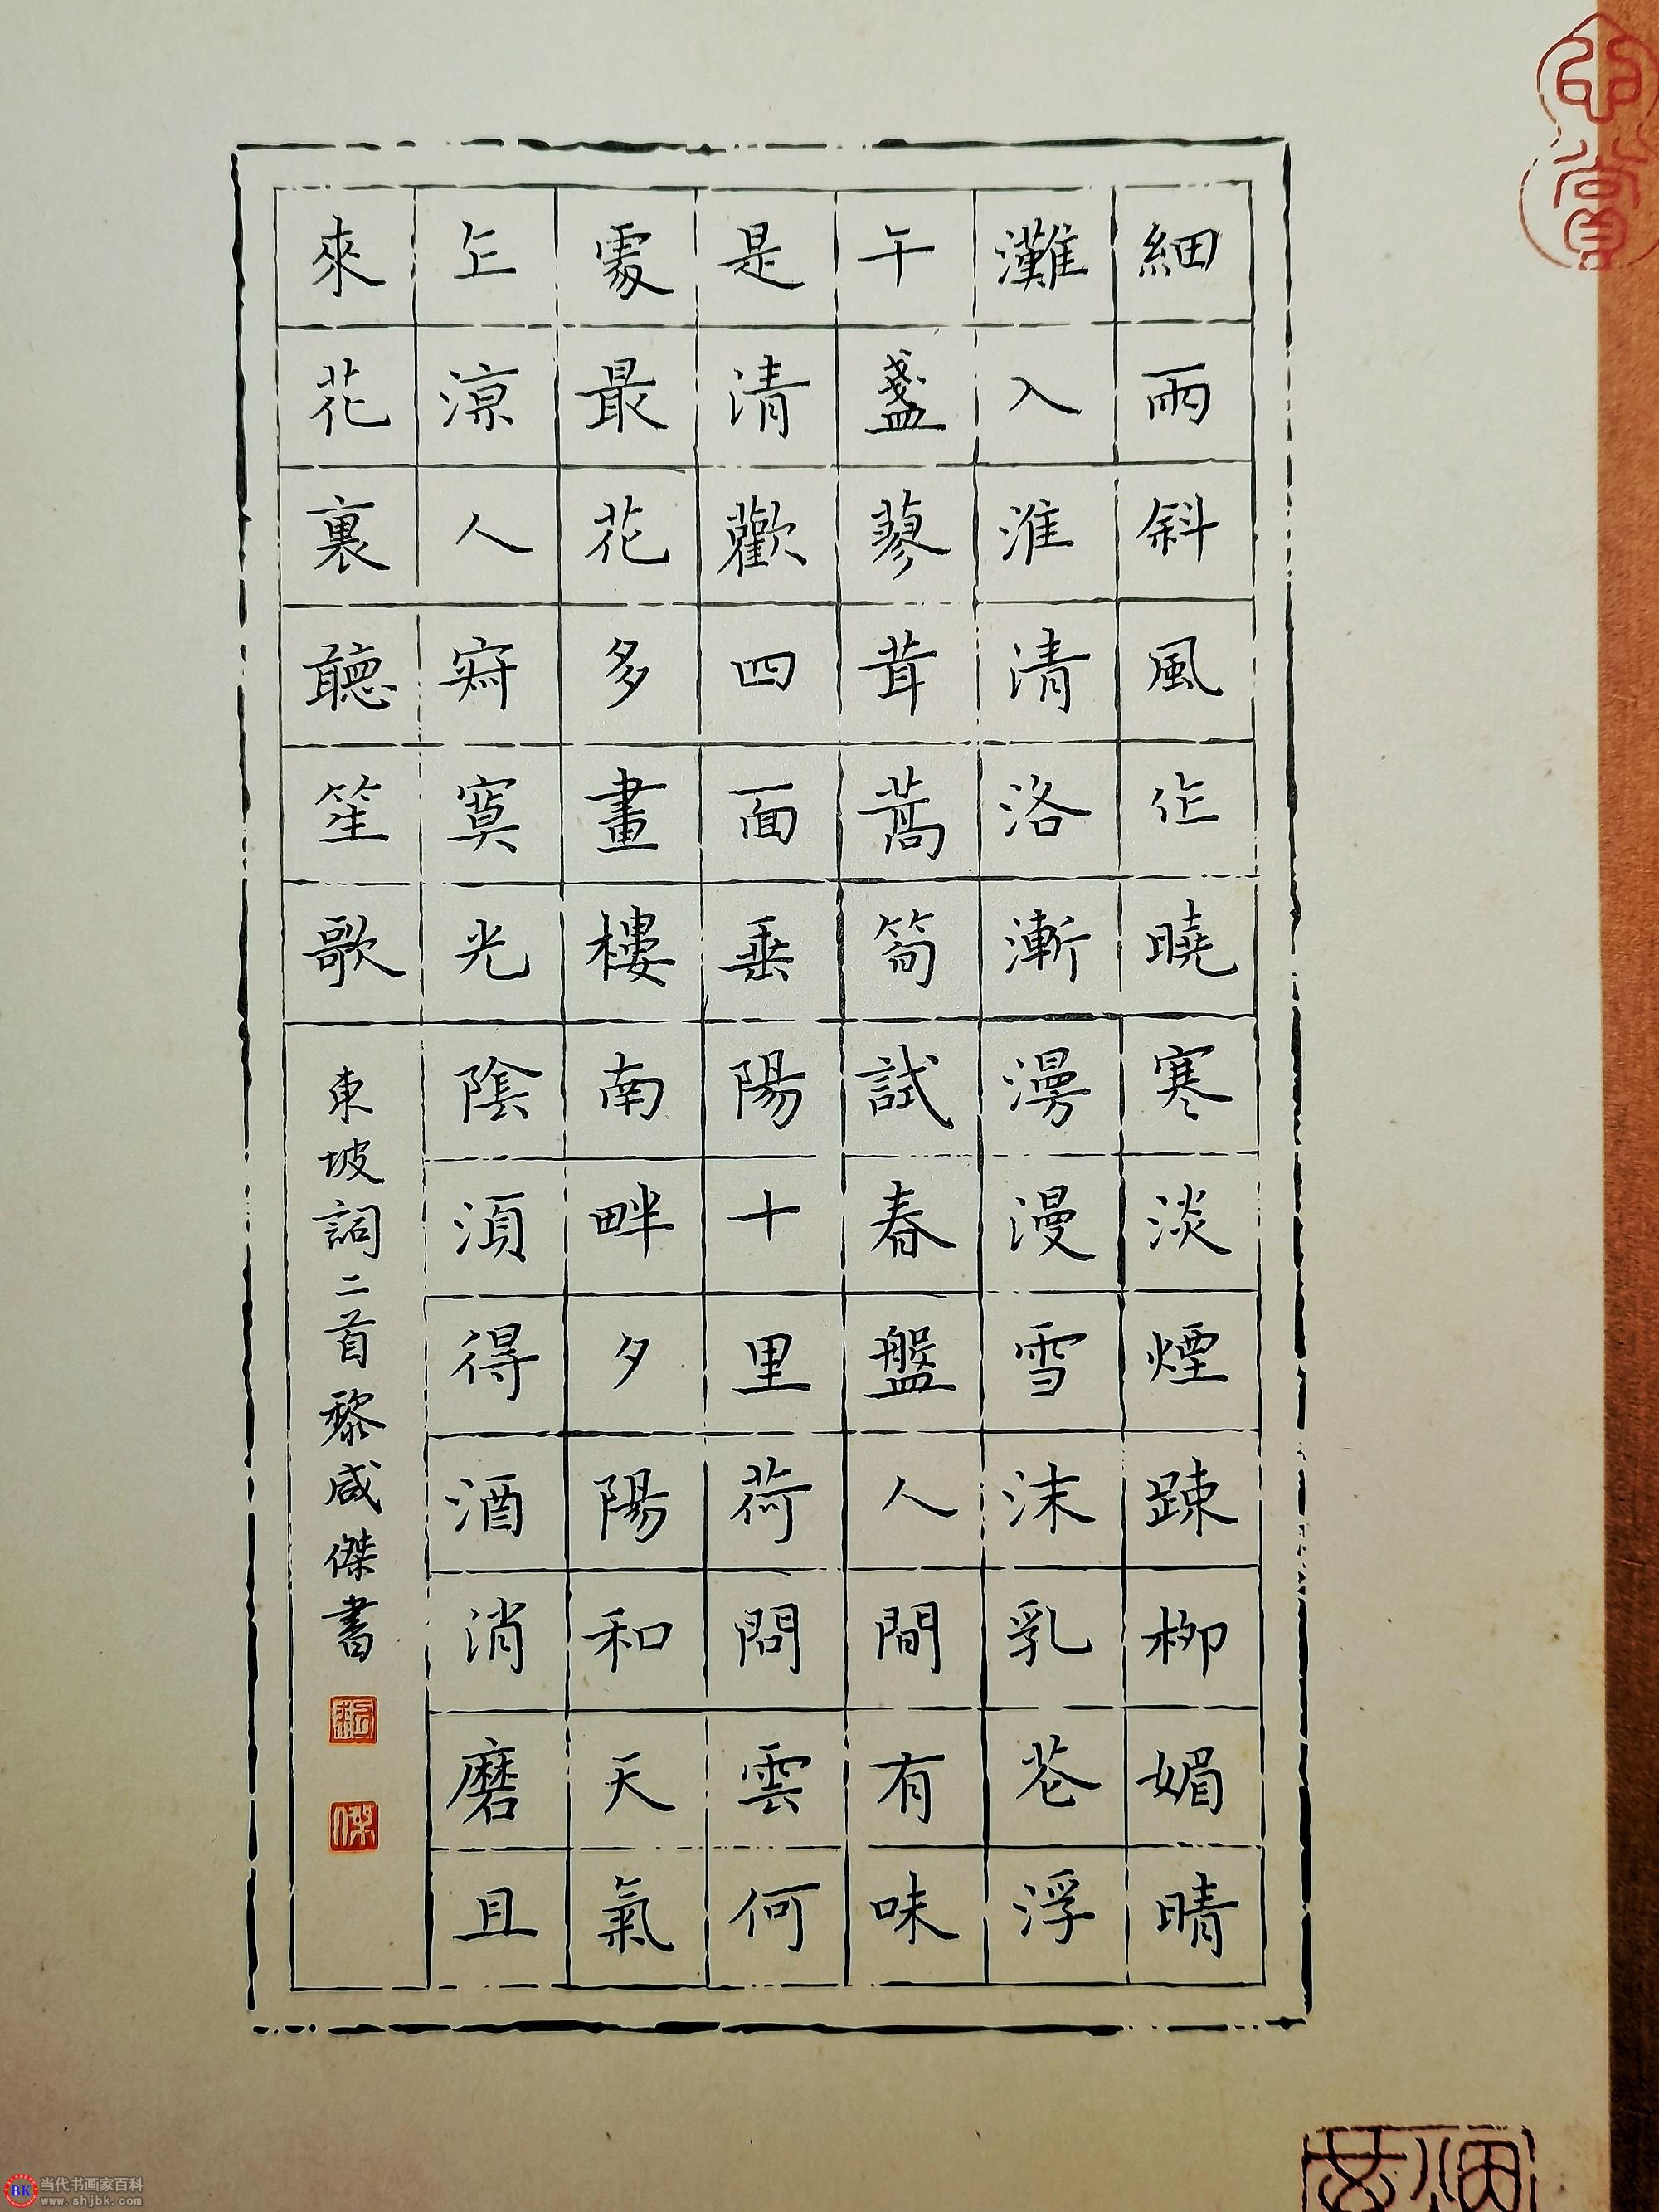 細雨斜風作曉寒淡煙踈柳媚晴
灘入淮清洛漸漫漫雪沫乳花浮
午盞蓼茸蒿筍試春盤人間有味
是清歡四面垂陽十里荷問雲何
處最花多畫樓南畔夕陽和天氣
乍涼人寂寞光陰湏得酒消磨且
來花裏聽笙歌
東坡詞二首黎咸傑書
傑
BK 当代书画家百科
www.shjbk.com